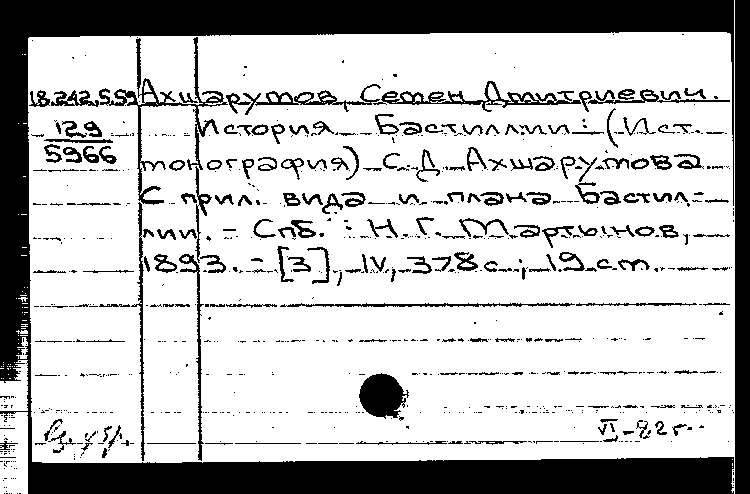 18.242.5.59 Ахшарумов, Семен Дмитриевич.
129 История Бастиллии: (Ист.
5966 монография) С.Д Ахшарумова
С прил. вида и плана Бастил-
лии. - Спб. : Н. Г. Мартынов,
1893. - [3], IV, 378 с ; 19 см.
VI-82 г.